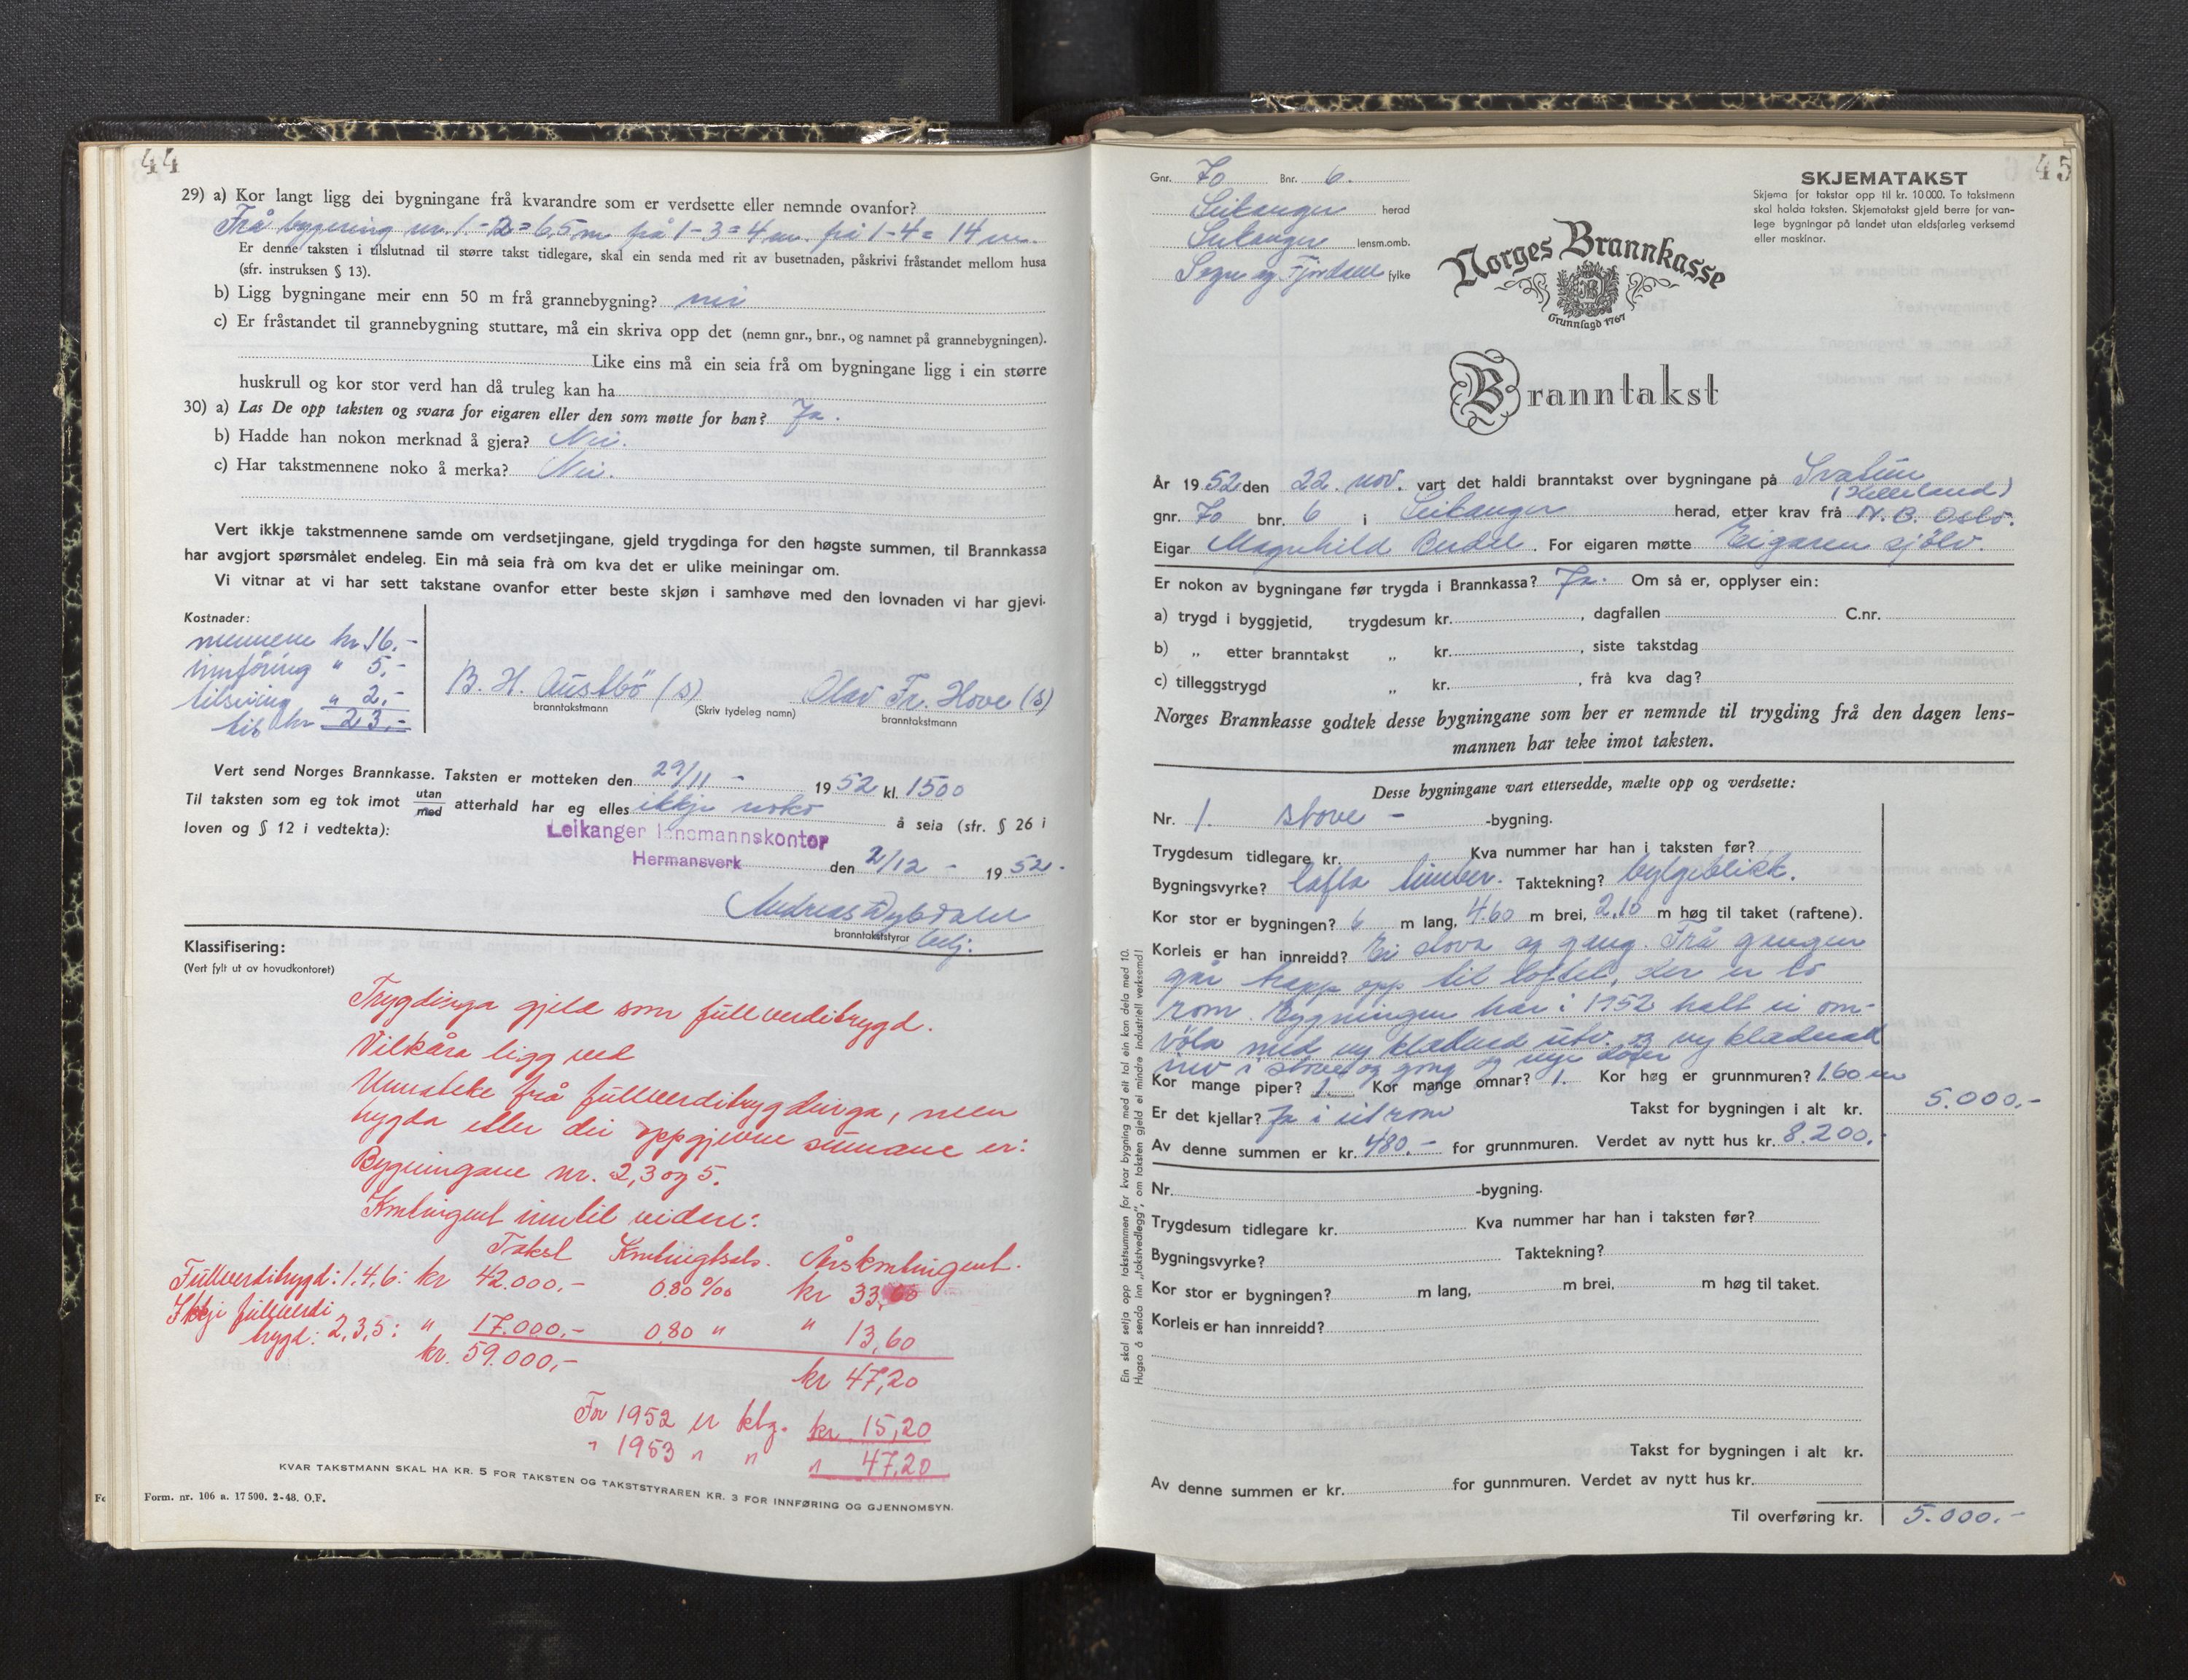 44
29) a) Kor langt ligg dei bygningane frå kvarandre som er verdsette eller nemnde ovanfor?
Frå bygning nr. 1 - 2 = 6,5 m frå 1 - 3 = 4 m. frå 1 - 4 = 14 m.
Er denne taksten i tilslutnad til større takst tidlegare, skal ein senda med rit av busetnaden, påskrivi fråstandet mellom husa
(sfr. instruksen § 13).
b) Ligg bygningane meir enn 50 m frå grannebygning? nei
c) Er fråstandet til grannebygning stuttare, må ein skriva opp det (nemn gnr., bnr., og namnet på grannebygningen).
Like eins må ein seia frå om bygningane ligg i ein større
huskrull og kor stor verd han då truleg kan ha
30) a) Las De opp taksten og svara for eigaren eller den som møtte for han? Ja.
b) Hadde han nokon merknad å gjera? Nei.
c) Har takstmennene noko å merka? Nei.
Vert ikkje takstmennene samde om verdsetjingane, gjeld trygdinga for den høgste summen, til Brannkassa
har avgjort spørsmålet endeleg. Ein må seia frå om kva det er ulike meiningar om.
Vi vitnar at vi har sett takstane ovanfor etter beste skjøn i samhøve med den lovnaden vi har gjevi.
Kostnader:
mennene kr 16.-
innføring " 5.-
tilsiving " 2.-
til kr 23,-
B. H. Austbö (s) Olav Fr. Hove (s)
branntakstmann (Skriv tydeleg namn) branntakstmann
Vert send Norges Brannkasse. Taksten er motteken den 29/11 - 1952 kl. 1500
Til taksten som eg tok imot utan/med atterhald har eg elles ikkje noko å seia (sfr. § 26 i
loven og § 12 i vedtekta):
Leikanger lensmannskontor
Hermansverk den 2/12 - 1952.
Andreas Dybdahl
branntakststyrar
Klassifisering:
(Vert fylt ut av hovudkontoret)
Trygdinga gjeld som fullverditrygd.
Vilkåra ligg ved
Unnateke frå fullverditrygdinga, men
trygda etter dei oppgjevne sumane er:
Bygningane nr. 2, 3 og 5.
Kontingent inntil vidare:
Takst Kontingtsats. Årskontingent.
Fullverditrygd: 1. 4. 6: kr 42.000,- 0.80 ‰ kr 33,60
Ikkje fullverdi
trygd: 2, 3, 5: " 17.000,- 0,80 " " 13,60
kr. 59.000,- kr 47,20
For 1952 er ktg. kr 15,20
" 1953 " " " 47,20
KVAR TAKSTMANN SKAL HA KR. 5 FOR TAKSTEN OG TAKSTSTYRAREN KR. 3 FOR INNFØRING OG GJENNOMSYN.
Form. nr. 106 a. 17 500. 2-48. O.F.
45
Gnr. 70 Bnr. 6.
Leikanger herad
Leikanger lensm.omb.
Sogn og Fjordane fylke
SKJEMATAKST
Skjema for takstar opp til kr. 10 000. To takstmenn
skal halda taksten. Skjematakst gjeld berre for van-
lege bygningar på landet utan eldsfarleg verksemd
eller maskinar.
Norges Brannkasse
Grunnlagd 1767
Branntakst
År 1952 den 22. nov. vart det haldi branntakst over bygningane på
(Helleland)
gnr. 70 bnr. 6 i Leikanger herad, etter krav frå N. B. Oslo.
Eigar Magnhild For eigaren møtte Eigaren sjölv.
Er nokon av bygningane før trygda i Brannkassa? Ja. Om så er, opplyser ein:
a) trygd i byggjetid, trygdesum kr. , dagfallen C.nr.
b) „ etter branntakst „ kr. , siste takstdag
c) tilleggstrygd „ kr. , frå kva dag?
Norges Brannkasse godtek desse bygningane som her er nemnde til trygding frå den dagen lens-
mannen har teke imot taksten.
Desse bygningane vart ettersedde, mælte opp og verdsette:
Nr. 1. stove - -bygning.
Trygdesum tidlegare kr. Kva nummer har han i taksten før?
Bygningsvyrke? lafta timber. Taktekning? bylgjeblikk.
Kor stor er bygningen? 6 m lang, 4.60 m brei, 2.10 m høg til taket (raftene).
Korleis er han innreidd? Ei stova og gang. Frå gangen
går trapp opp til loftet, der er to
rom. Bygningen har i 1952 hatt ei om-
völa med ny klædned utv. og ny klædnad
inv i stove og gong og nye dører
Kor mange piper? 1 Kor mange omnar? 1. Kor høg er grunnmuren? 1.60 m
Er det kjellar? Ja i eit rom Takst for bygningen i alt kr. 5.000.-
Av denne summen er kr. 480.- for grunnmuren. Verdet av nytt hus kr. 8.200.-
Nr. -bygning.
Trygdesum tidlegare kr. Kva nummer har han i taksten før?
Bygningsvyrke? Taktekning?
Kor stor er bygningen? m lang, m brei, m høg til taket.
Korleis er han innreidd?
Takst for bygningen i alt kr.
Av denne summen er kr. for gunnmuren. Verdet av nytt hus kr.
Til overføring kr. 5.000.-
Ein skal setja opp takstsummen for kvar bygning med eit tal ein kan dela med 10.
Hugsa å senda inn „takstvedlegg", om taksten gjeld ei mindre industriell verksemd!